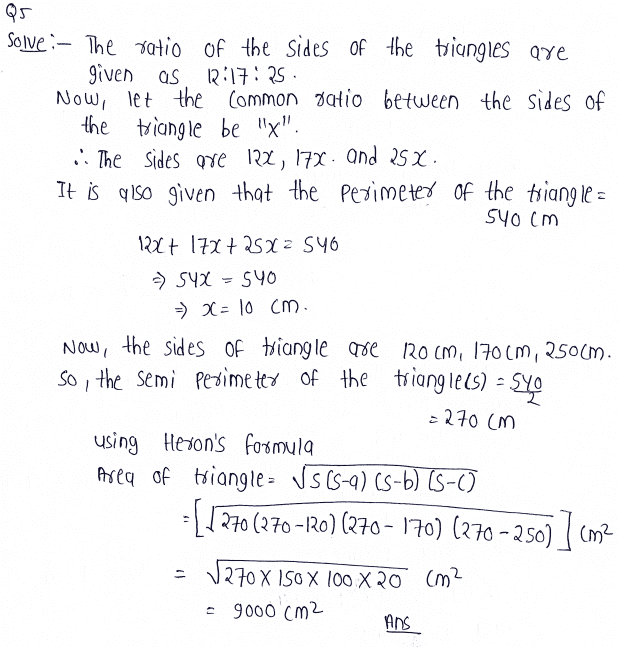 Q5
Solve :- The ratio of the sides of the triangles are
given as 12:17:25.
Now, let the common ratio between the sides of
the triangle be "x".
∴ The sides are 12x, 17x. and 25x.
It is also given that the perimeter of the triangle =
540 cm
12x + 17x + 25x = 540
⇒ 54x = 540
⇒ x = 10 cm.
Now, the sides of triangle are 120 cm, 170 cm, 250 cm.
So, the semi perimeter of the triangle(s) = 540/2
= 270 cm
using Heron's formula
Area of triangle = √s(s-a) (s-b) (s-c)
= [√270(270-120)(270-170) (270-250)] cm²
= √270 X 150 X 100 X 20 cm²
= 9000 cm²
Ans